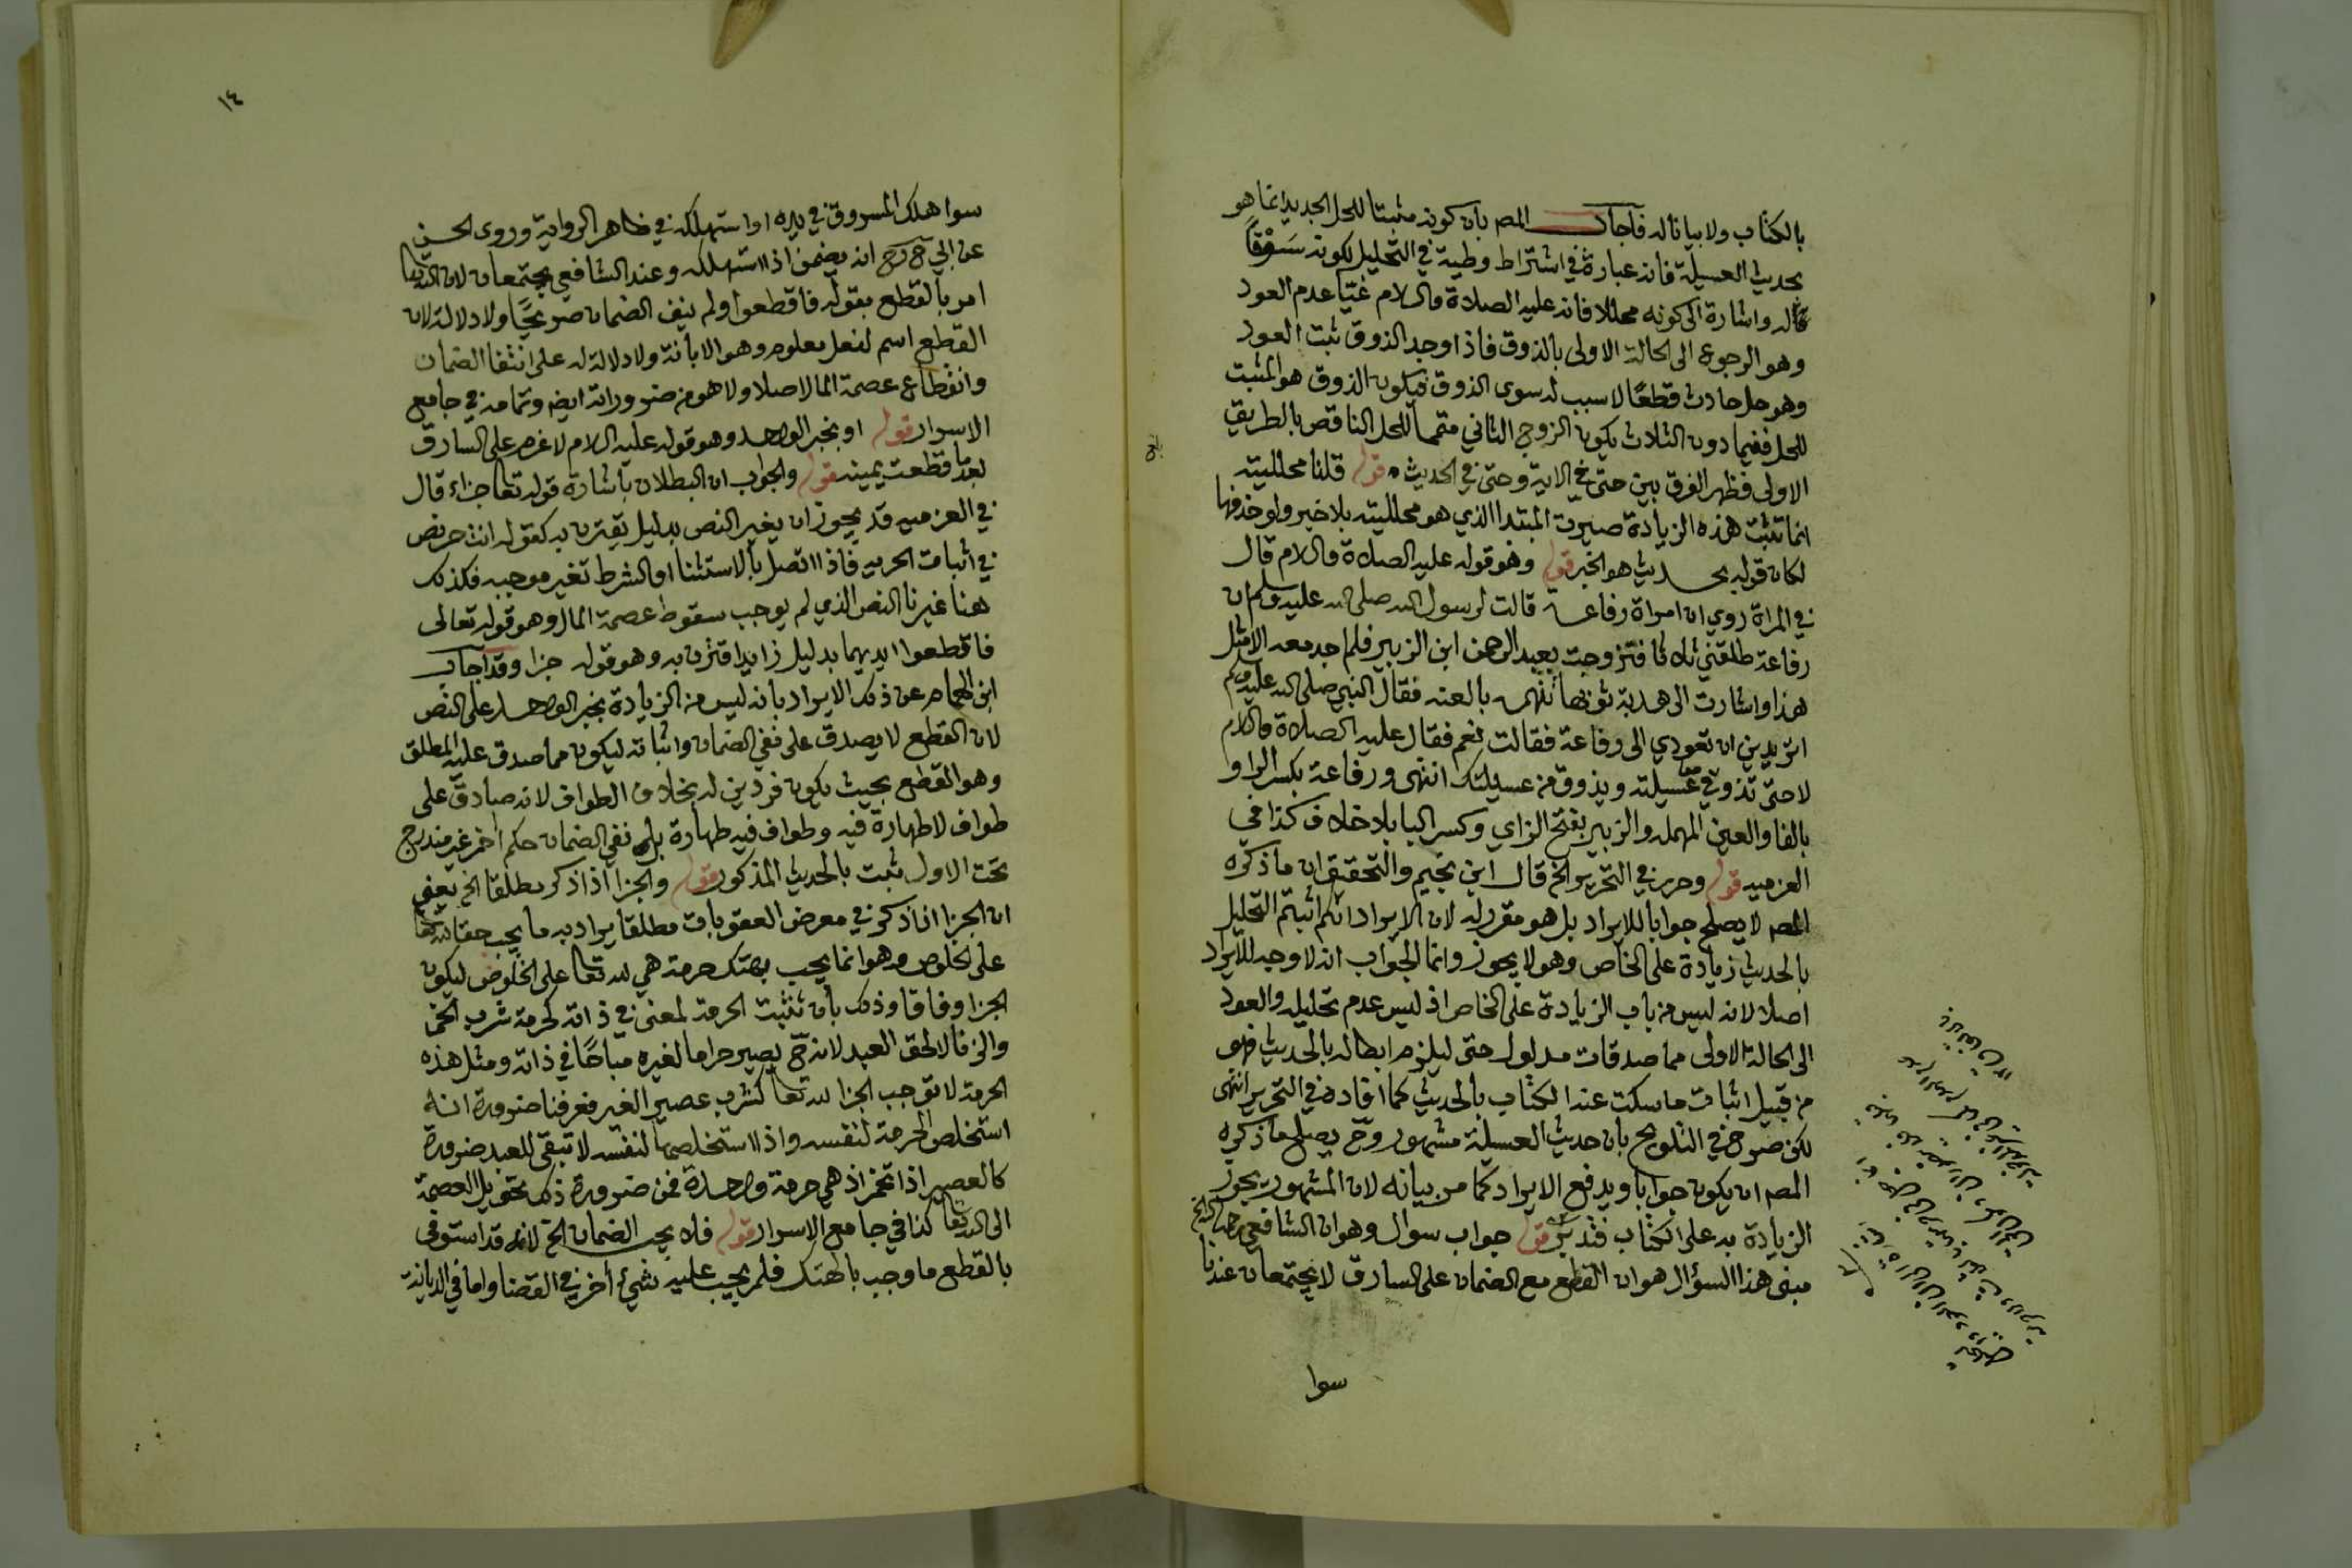 بالكتاب ولا بيانا له فاجاب المص بان كونه مثبتا للحل الجديد انما هو
بحديث العسيلة فانه عبارة في اشتراط وطيه في التحليل لكونه سوقا
له واشارة الى كونه محللا فانه عليه الصلاة والسلام غيّا عدم العود
وهو الرجوع الى الحالة الاولى بالذوق فاذا وجد الذوق ثبت العود
وهو حل حادث قطعا لا سبب له سوى الذوق فيكون الذوق هو المثبت
للحل ففيما دون الثلاث يكون الزوج الثاني متمما للحل الناقص بالطريق
الاولى فظهر الفرق بين حتى في الاية وحتى في الحديث قوله قلنا محلليته
انما تثبت هذه الزيادة صيرت المبتدا الذي هو محلليته بلا خبر ولو حذفها
لكان قوله بحديث هو الخبر قوله وهو قوله عليه الصلاة والسلام قال
في المراة روي ان امراة رفاعة قالت لرسول الله صلى الله عليه وسلم ان
رفاعة طلقني ثلاثا فتزوجت بعبد الرحمن ابن الزبير فلم اجد معه الا مثل
هذا واشارت الى هدبة ثوبها تتهمه بالعنه فقال النبي صلى الله عليه وسلم
اتريدين ان تعودي الى رفاعة فقالت نعم فقال عليه الصلاة والسلام
لا حتى تذوقي من عسيلته ويذوق من عسيلتك انتهى ورفاعة بكسر الراء و
بالفا والعين المهمله والزبير بفتح الزاي وكسر البا بلا خلاف كذا في
العزميه قوله وحرر في التحرير الخ قال ابن نجيم والتحقيق ان ما ذكره
المص لا يصلح جوابا للايراد بل هو مقرر له لان الايراد انكم اثبتم التحليل
بالحديث زيادة على الخاص وهو لا يجوز وانما الجواب انه لا وجه للايراد
اصلا لانه ليس من باب الزيادة على الخاص اذ ليس عدم تحليله والعود
الى الحالة الاولى مما صدقات مدلول حتى ليلزم ابطاله بالحديث فهو
من قبيل اثبات ما سكت عنه الكتاب بالحديث كما افاده في التحرير انتهى
لكن صرح في التلويح بان حديث العسيلة مشهور وح يصلح ما ذكره
المص ان يكون جوابا ويدفع الايراد كما مر بيانه لان المشهور يجوز
الزيادة به على الكتاب فتدبر قوله جواب سوال وهو ان الشافعي رحمه الله الخ
مبنى هذا السؤال هو ان القطع مع الضمان على السارق لا يجتمعان عندنا
سوا
١٤
سوا هلك المسروق في يده او استهلكه في ظاهر الرواية وروى الحسن
عن ابي ح رح انه يضمن اذا استهلكه وعند الشافعي يجتمعان لان الله تعا
امر بالقطع بقوله فاقطعوا ولم ينف الضمان صريحا ولا دلالة لان
القطع اسم لفعل معلوم وهو الابانة ولا دلالة له على انتفا الضمان
وانقطاع عصمة المال اصلا ولا هو من ضروراته ايض وتمامه في جامع
الاسرار قوله او بخبر الواحد وهو قوله عليه السلام لا غرم على السارق
بعد ما قطعت يمينه قوله والجواب ان البطلان باشارة قوله تعا جزاء قال
في العزميه قد يجوز ان يغير النص بدليل يقترن به كقوله انت حر نص
في اثبات الحريه فاذا اتصل بالاستثنا او الشرط تغير موجبه فكذلك
هنا غيرنا النص الذي لم يوجب سقوط عصمة المال وهو قوله تعالى
فاقطعوا ايديهما بدليل زايد اقترن به وهو قوله جزا وقد اجاب
ابن الهمام عن ذلك الايراد بانه ليس من الزيادة بخبر الواحد على النص
لان القطع لا يصدق على نفي الضمان واثباته ليكون مما صدق عليه المطلق
وهو القطع بحيث يكون فردين له بخلاف الطواف لانه صادق على
طواف لا طهارة فيه وطواف فيه طهارة بل نفي الضمان حكم اخر غير مندرج
تحت الاول ثبت بالحديث المذكور قوله والجزا اذا ذكر مطلقا الخ يعني
ان الجزا اذا ذكر في معرض العقوبات مطلقا يراد به ما يجب حقا لله تعا
على الخلوص وهو انما يجب بهتك حرمة هي لله تعا على الخلوص ليكون
الجزا وفاقا وذلك بان تثبت الحرمة لمعنى في ذاته كحرمة شرب الخمر
والزنا لا لحق العبد لانه ح يصير حراما لغيره مباحا في ذاته ومثل هذه
الحرمة لا توجب الجزا لله تعا كشرب عصير الغير فعرفنا ضرورة انه
استخلص الحرمة لنفسه واذا استخلصها لنفسه لا تبقى للعبد ضرورة
كالعصير اذا تخمر اذ هي حرمة واحدة فمن ضرورة ذلك تحويل العصمة
الى الله تعا كذا في جامع الاسرار قوله فلا يجب الضمان الخ لانه قد استوفى
بالقطع ما وجب بالهتك فلم يجب عليه شيء أخر في القضا واما في الديانة